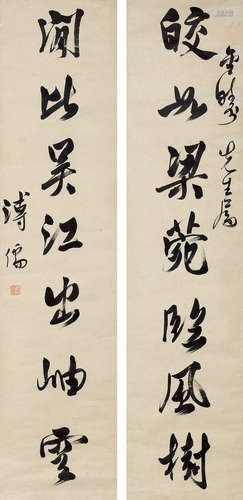 皎如梁苑臨風樹
先生屬
閒比吳江出岫雲
溥儒